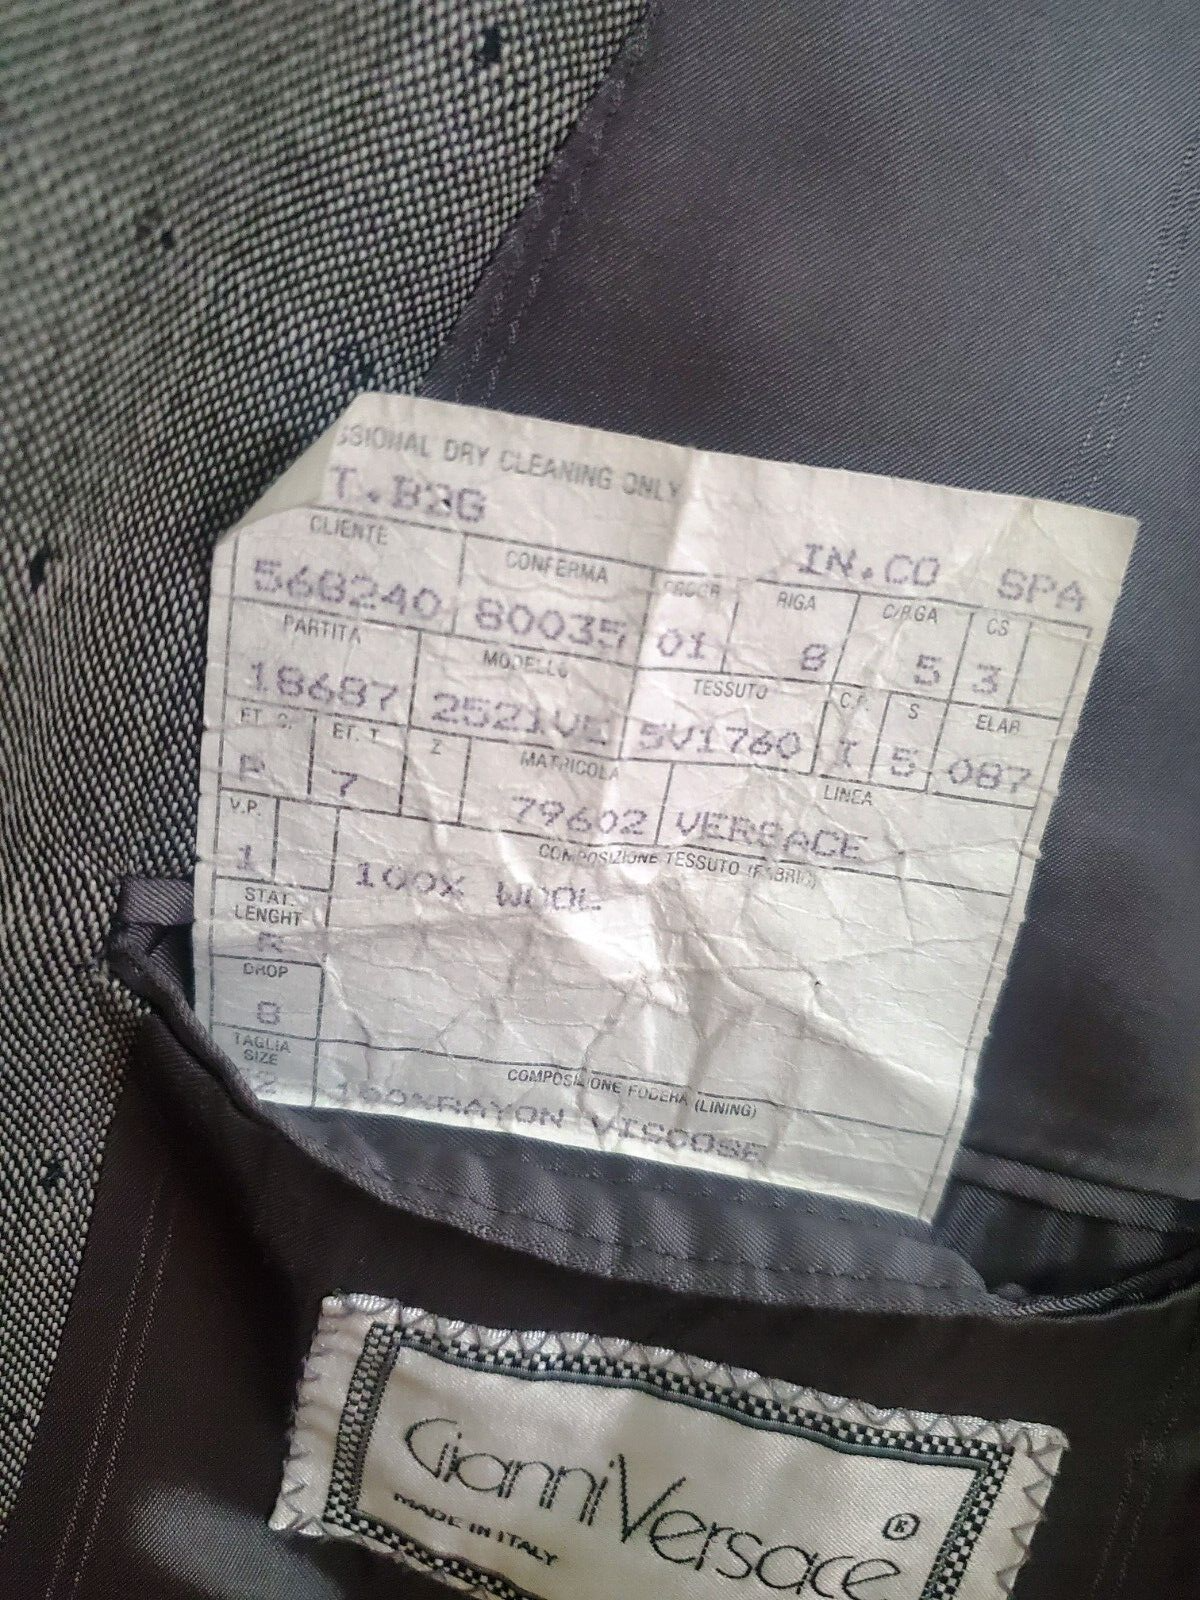 SSIONAL DRY CLEANING ONLY
IN.CO SPA
CLIENTE CONFERMA RIGA C/RGA CS
568240 80035 01 8 5 3
PARTITA MODELLO TESSUTO C.F. S ELAB
18687 2521VE 5V1760 I 5 087
ET. C. ET. T Z MATRICOLA LINEA
P 7 79602 VERSACE
V.P. COMPOSIZIONE TESSUTO (FABRIC)
1 100% WOOL
STAT.
LENGHT
R
DROP
8
TAGLIA
SIZE COMPOSIZIONE FODERA (LINING)
2 100%RAYON VISCOSE
Gianni Versace ®
MADE IN ITALY